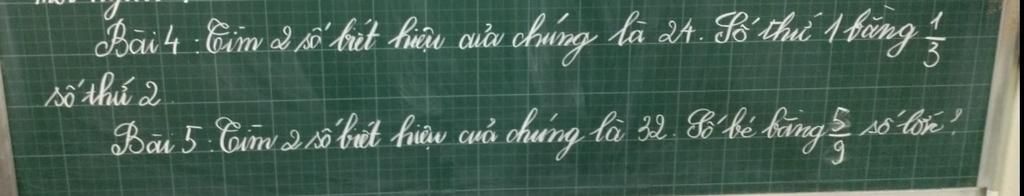 Bài 4 : Tìm 2 số biết hiệu của chúng là 24. Số thứ 1 bằng 1/3
số thứ 2
Bài 5 : Tìm 2 số biết hiệu của chúng là 32. Số bé bằng 5/9 số lớn?